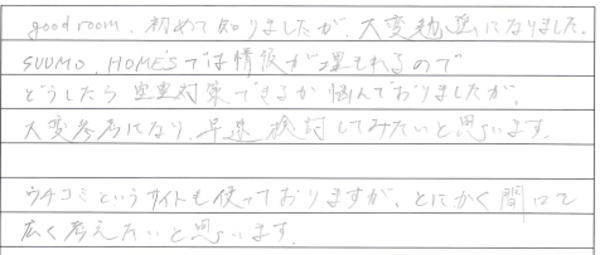 goodroom、初めて知りましたが、大変勉強になりました。
SUUMO、HOME'Sでは情報が埋もれるので
どうしたら空室対策できるか悩んでおりましたが、
大変参考になり、早速検討してみたいと思います。
ウチコミというサイトも使っておりますが、とにかく間口を
広く考えたいと思います。